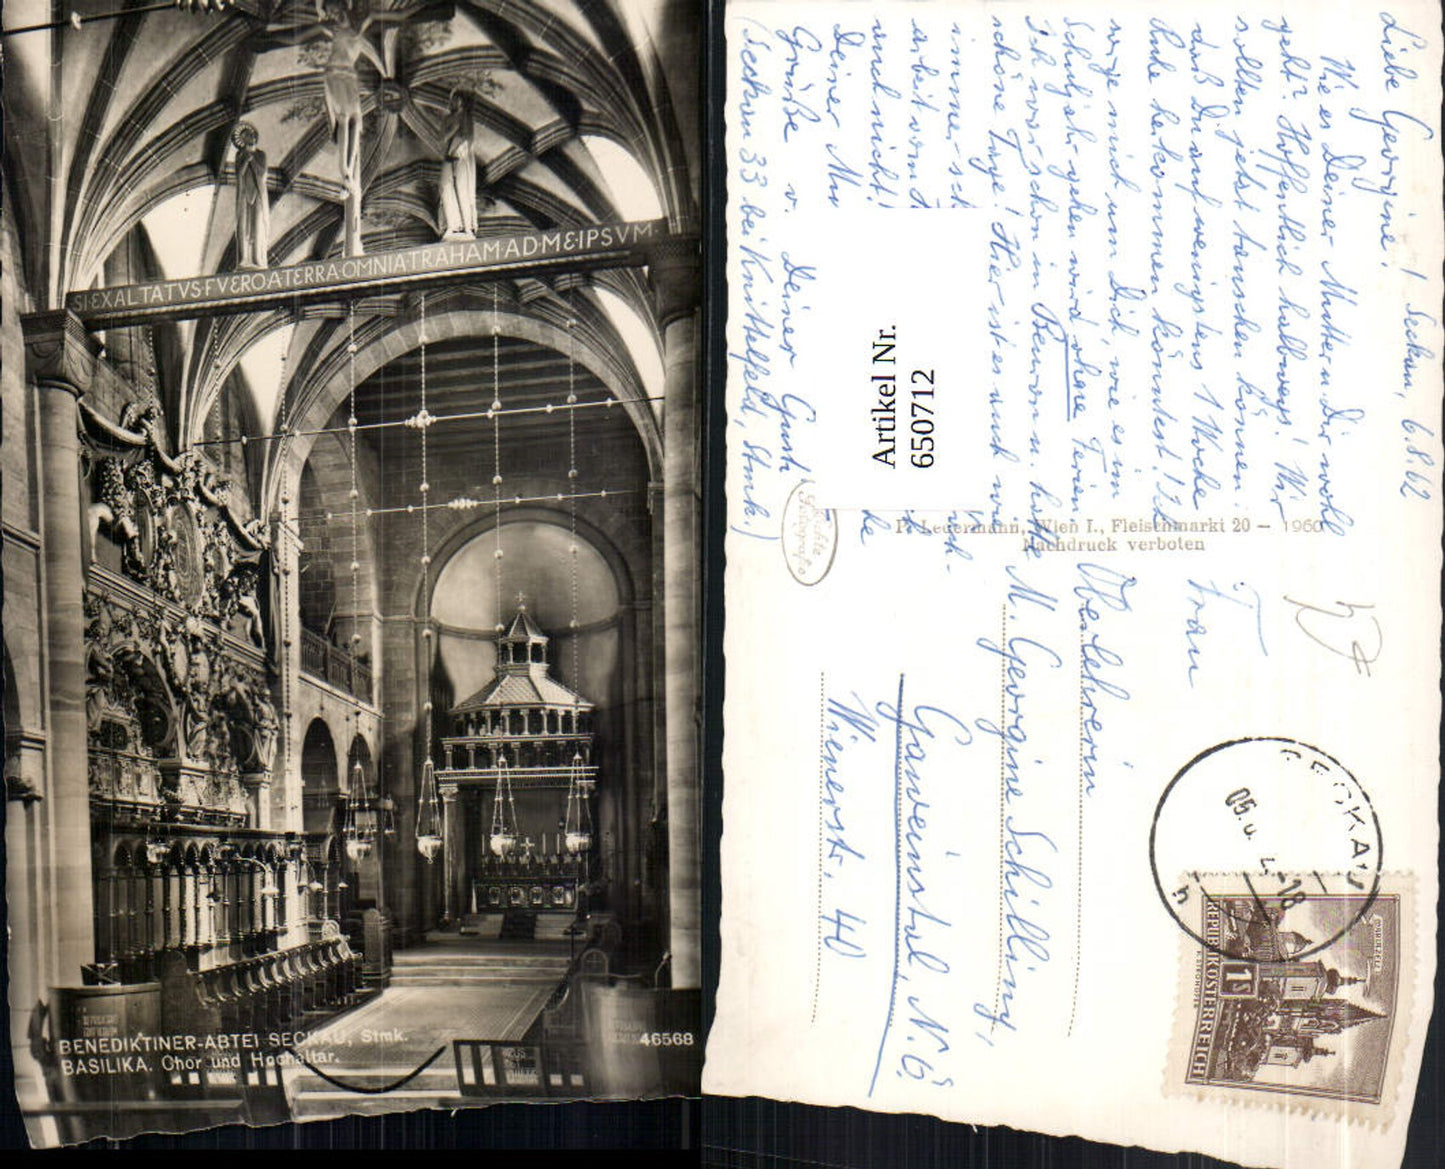 SI·EXALTATVS·FVERO A TERRA OMNIA TRAHAM·AD·ME·IPSVM·
BENEDIKTINER-ABTEI SECKAU, Stmk.
BASILIKA. Chor und Hochaltar.
46568
Seckau, 6.8.62
Liebe Georgine!
Wie es Deiner Mutter u. Dir wohl
geht? Hoffentlich halbwegs! Wir
sollten jetzt tauschen können:
daß Du auf wenigstens 1 Woche
Ruhe herkommen könntest! Ich
sorge mich um Dich, wie es im
Schuljahr gehen wird ohne Ferien
Ich war schon in Beuron u. hatte
schöne Tage! Hier ist es auch wie
immer
arbeit vom
auch nicht!
Deiner Mu
Grüße v. Deiner Gusti
(Seckau 33 bei Knittelfeld, Stmk.)
Artikel Nr.
650712
P. Ledermann, Wien I., Fleischmarkt 20 — 1960
Nachdruck verboten
Echte
Fotografie
Frau
Oberlehrerin
M. Georgine Schilling,
Gaweinstal, N.Ö.
Wienerstr. 40
SECKAU
REPUBLIK ÖSTERREICH
1 S